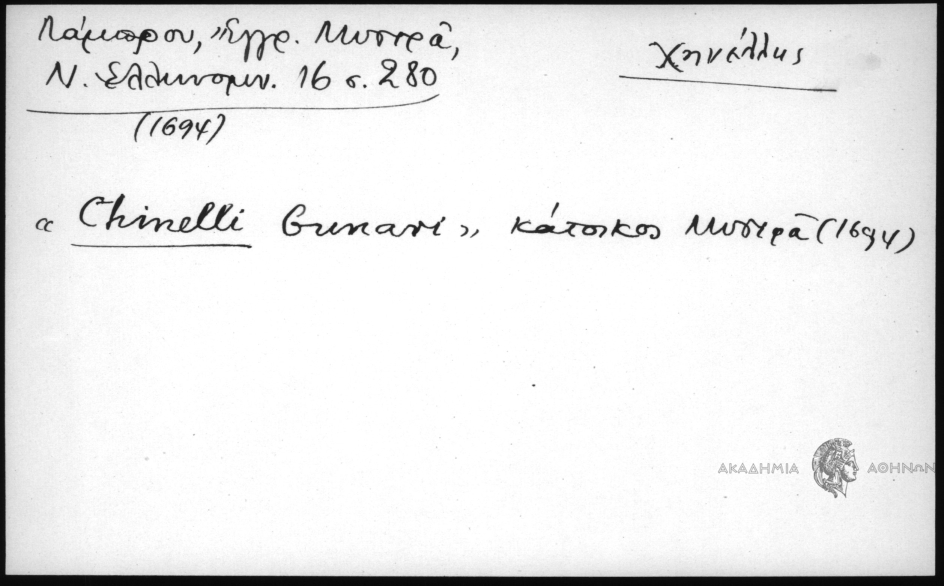 Λάμπρου, Ἔγγρ. Μυστρᾶ,
Ν. Ἑλληνομν. 16 σ. 280
(1694)
Χηνέλλης
« Chinelli » κάτοικος Μυστρᾶ (1694)
ΑΚΑΔΗΜΙΑ ΑΘΗΝΩΝ